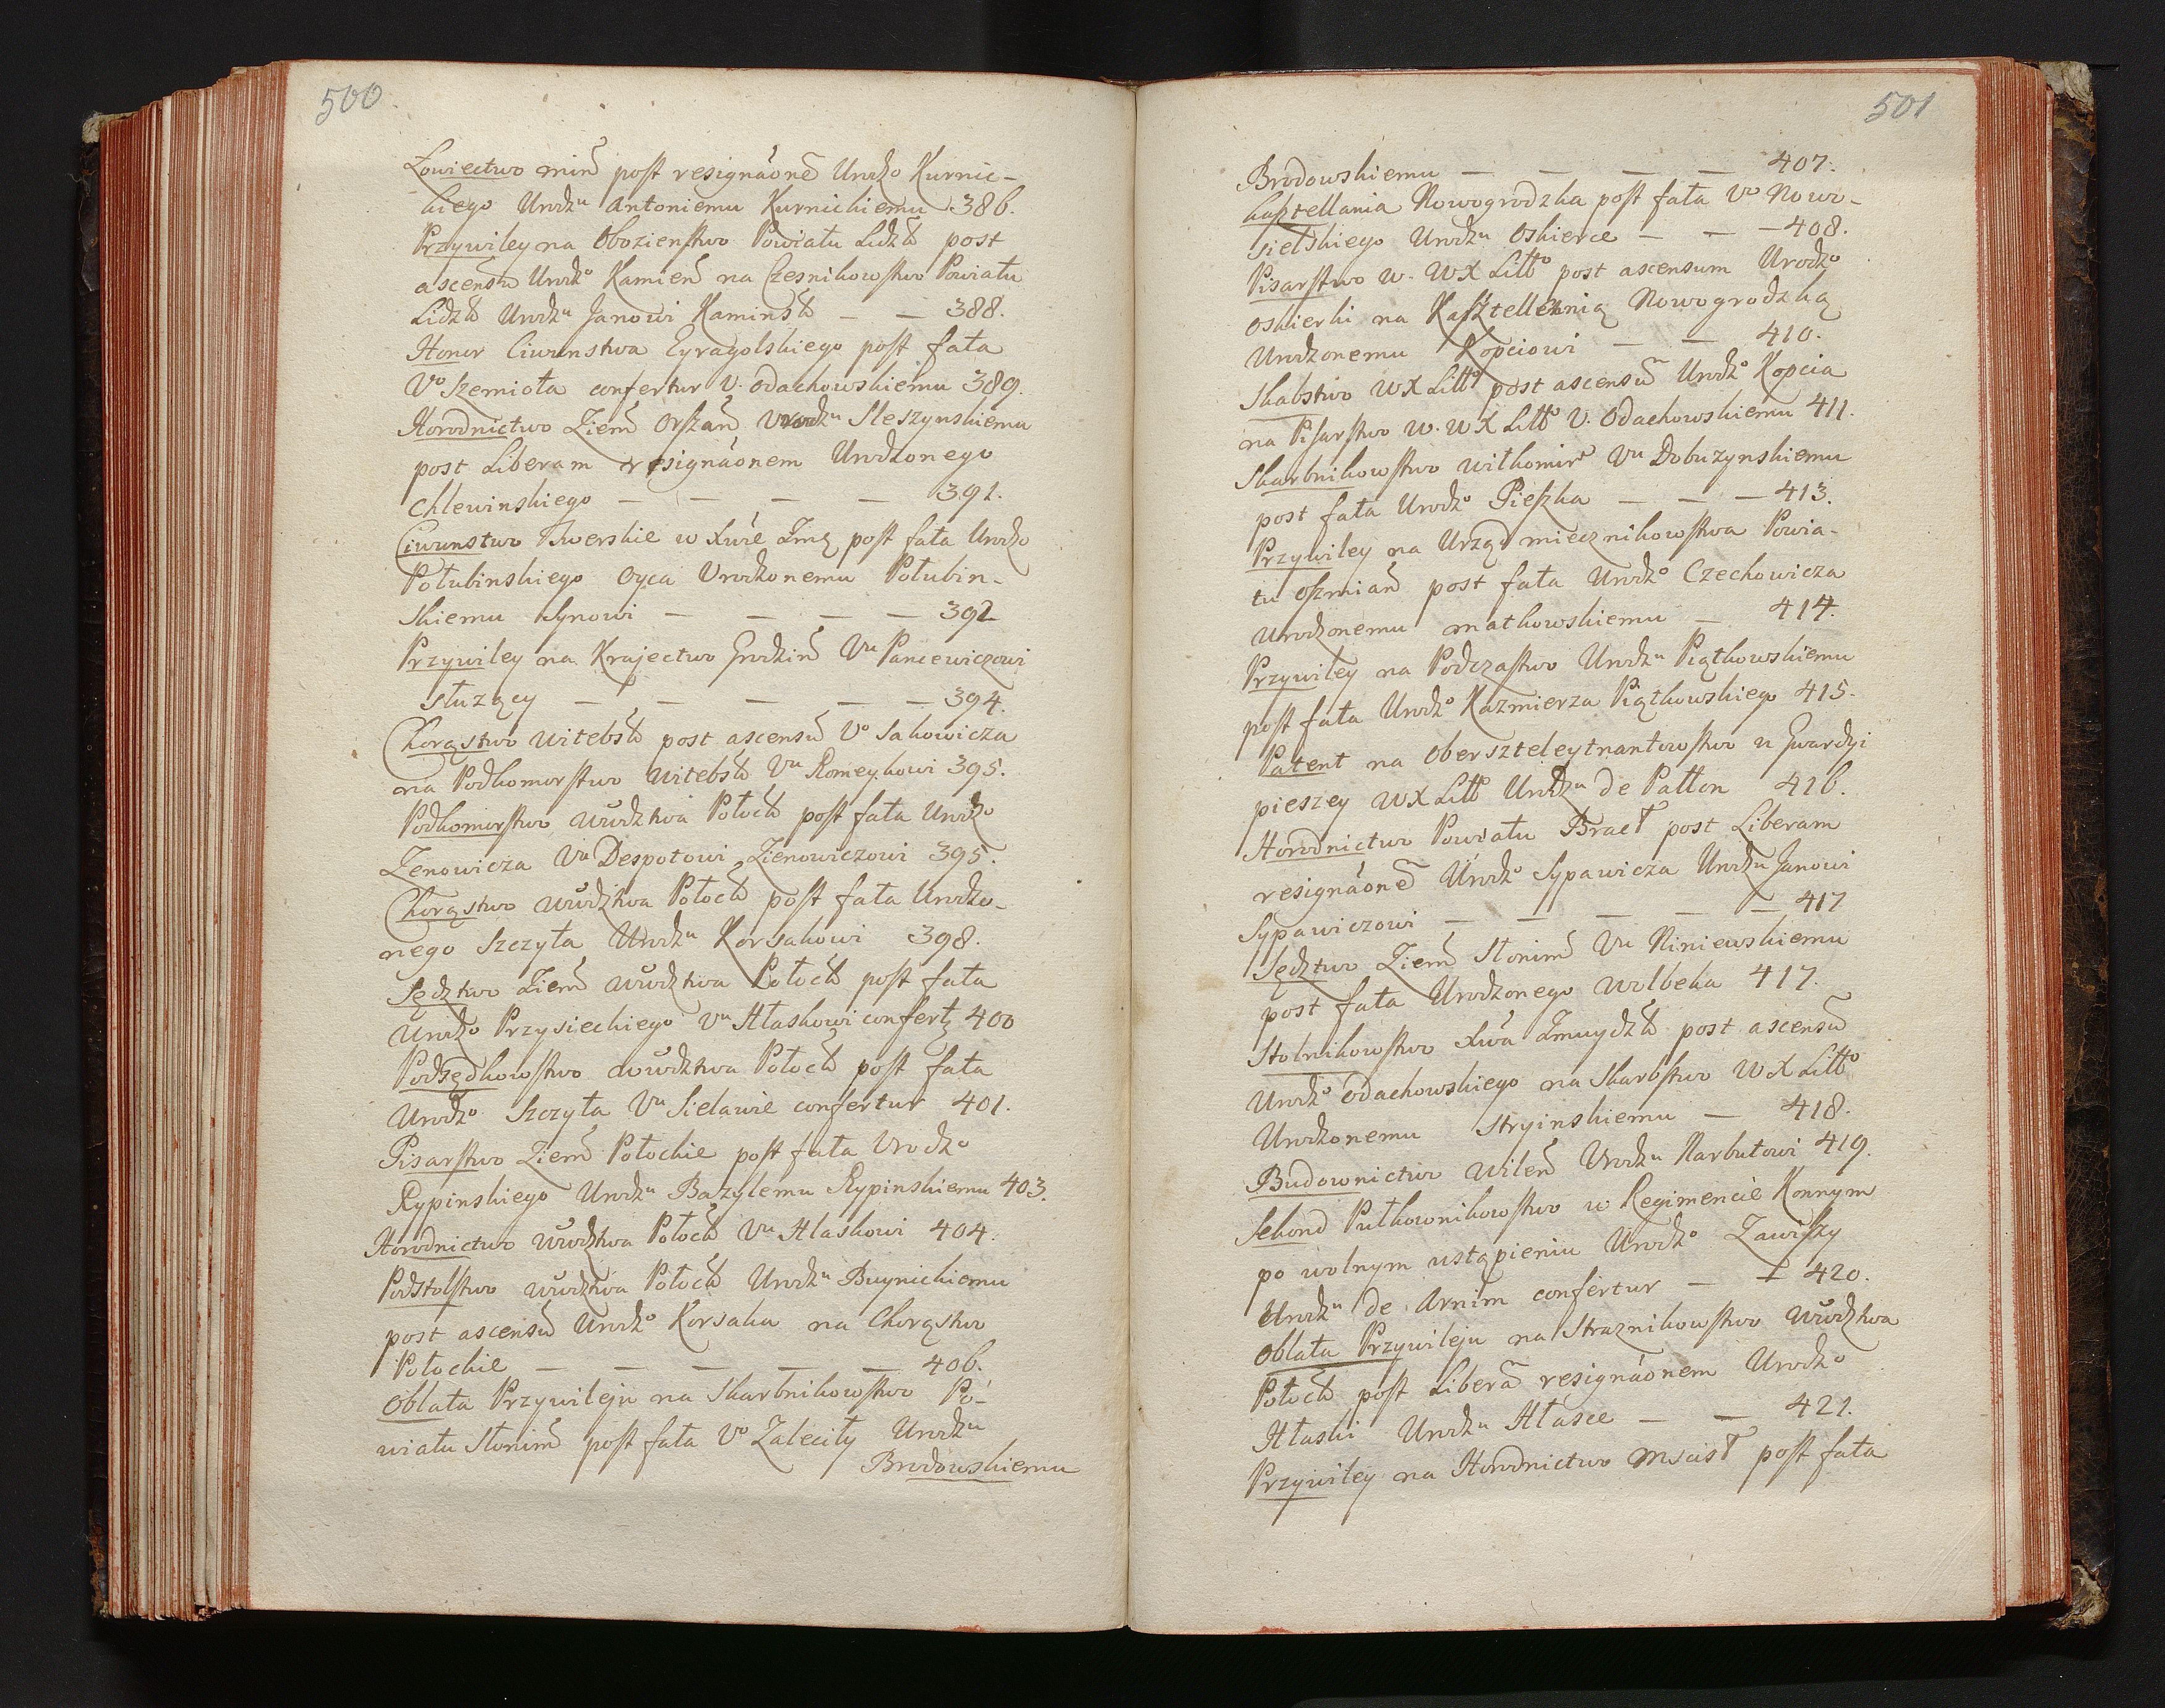 500
Łowiectwo min̄ post resignáonē Urodzo Kurnic-
kiego Urodzu Antoniemu Kurnickiemu 386.
Przywiley na Obozienstwo Powiatu Lidzk post
ascensū Urodzo Kamień na Czesnikowstwo Powiatu
Lidzk Urodzu Janowi Kaminsk — — 388.
Honor Ciwunstwa Eyragolskiego post fata
Vo Szemiota confertur V. Odachowskiemu 389.
Horodnictwo Ziem Orszan Urodzu Sleszynskiemu
post Liberam resignáonem Urodzonego
Chlewinskiego — — — — 391.
Ciwunstwo Twerskie w Xwie Żmg post fata Urodzo
Połubinskiego Oyca Urodzonemu Połubin-
skiemu Synowi — — — — 392
Przywiley na Krajectwo Grodzin Vu Pancewiczowi
służący — — — — — 394.
Chorąstwo Witebsk post ascensū Vo Sakowicza
na Podkomorstwo Witebsk Vu Romeykowi 395.
Podkomorstwo wwdztwa Połock post fata Urodzo
Zenowicza Vu Despotowi Zienowiczowi 395.
Chorąstwo wwdztwa Połock post fata Urodzo-
nego Szczyta Urodzu Korsakowi 398.
Sędztwo Ziem wwdztwa Połock post fata
Urodzo Przysieckiego Vu Hłaskowi confertz 400
Podsędkowstwo wwdztwa Połock post fata
Urodzo Szczyta Vu Sielawie confertur 401.
Pisarstwo Ziem Połockie post fata Urodzo
Rypinskiego Urodzu Bazylemu Rypinskiemu 403.
Horodnictwo wwdztwa Połock Vu Hlaskowi 404.
Podstolstwo wwdztwa Połock Urodzu Buynickiemu
post ascensū Urodzo Korsaka na Chorąstwo
Połockie — — — — — 406.
Oblata Przywileju na Skarbnikowstwo Po-
wiatu Słonim post fata Vo Zalecity Urodzu
Brodowskiemu
501
Brodowskiemu — — — — 407.
Kasztellania Nowogrodzka post fata Vo Nowo-
sielskiego Urodzu Oskierce — — — 408.
Pisarstwo W. WX Litto post ascensum Urodzo
Oskierki na Kasztellanią Nowogrodzką
Urodzonemu Kopciowi — — 410.
Skabstwo WX Litto post ascensū Urodzo Kopcia
na Pisarstwo W. WX Litto V. Odachowskiemu 411.
Skarbnikowstwo Wiłkomir Vu Dobuzynskiemu
post fata Urodzo Pieszka — — — 413.
Przywiley na Urząd miecznikowstwa Powia-
tu Oszmian post fata Urodzo Czechowicza
Urodzonemu Matkowskiemu — 414.
Przywiley na Podczastwo Urodzu Piątkowskiemu
post fata Urodzo Kazmierza Piątkowskiego 415.
Patent na Oberszteleytnantowstwo u Gwardyi
pieszey WX Litto Urodzu de Patton 416.
Horodnictwo Powiatu Bracł post Liberam
resignáonē Urodzo Sypawicza Urodzu Janowi
Sypawiczowi — — — — — 417
Sędztwo Ziem Słonim Vu Niniewskiemu
post fata Urodzonego Wolbeka 417.
Stolnikowstwo Xwa Żmuydzk post ascensū
Urodzo Odachowskiego na Skarbstwo WX Litto
Urodzonemu Stryinskiemu — 418.
Budownictwo Wilen Urodzu Narbutowi 419.
Sekond Pułkownikowstwo w Regimencie Konnym
po wolnym ustąpieniu Urodzo Zawiszy
Urodzu de Arnim confertur — — 420.
Oblata Przywileju na Straznikowstwo wwdztwa
Połock post Liberā resignáonem Urodzo
Hłaski Urodzu Hłasce — — 421.
Przywiley na Horodnictwo Mścisł post fata